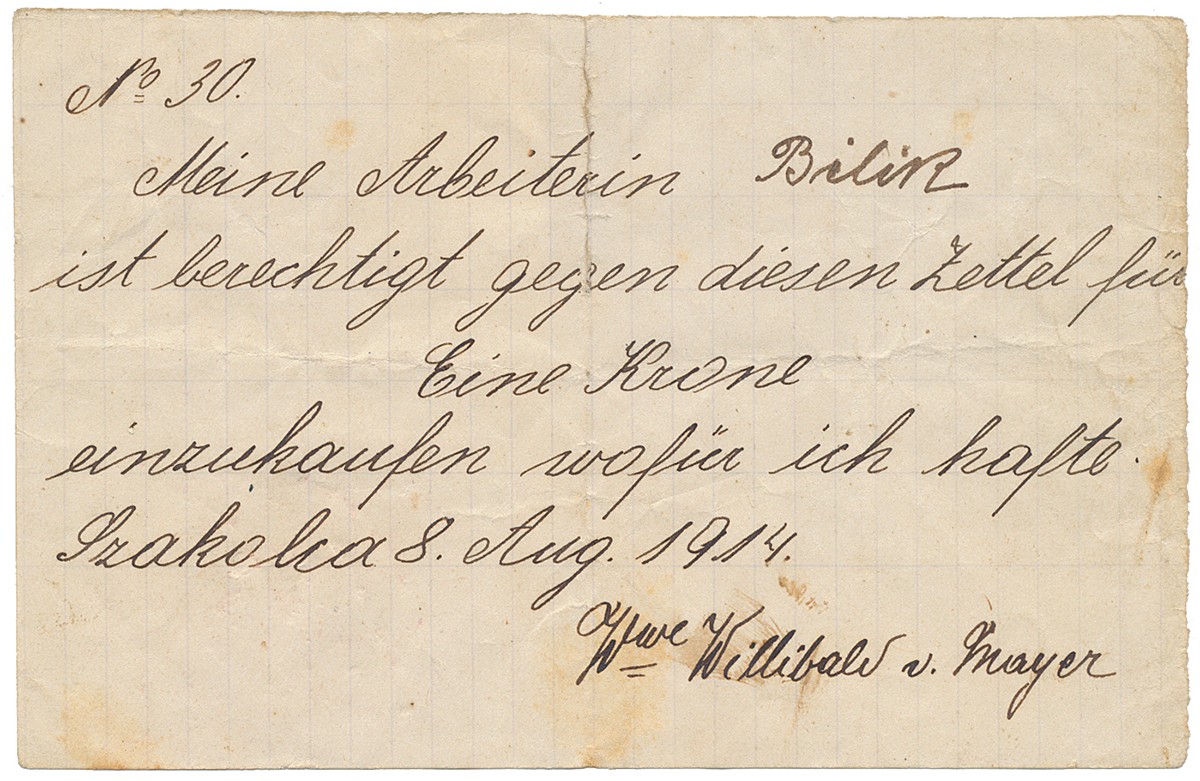 No 30.
Meine Arbeiterin Bilik
ist berechtigt gegen diesen Zettel für
Eine Krone
einzukaufen wofür ich hafte.
Szakolca 8. Aug. 1914.
Wwe Willibald v. Mayer